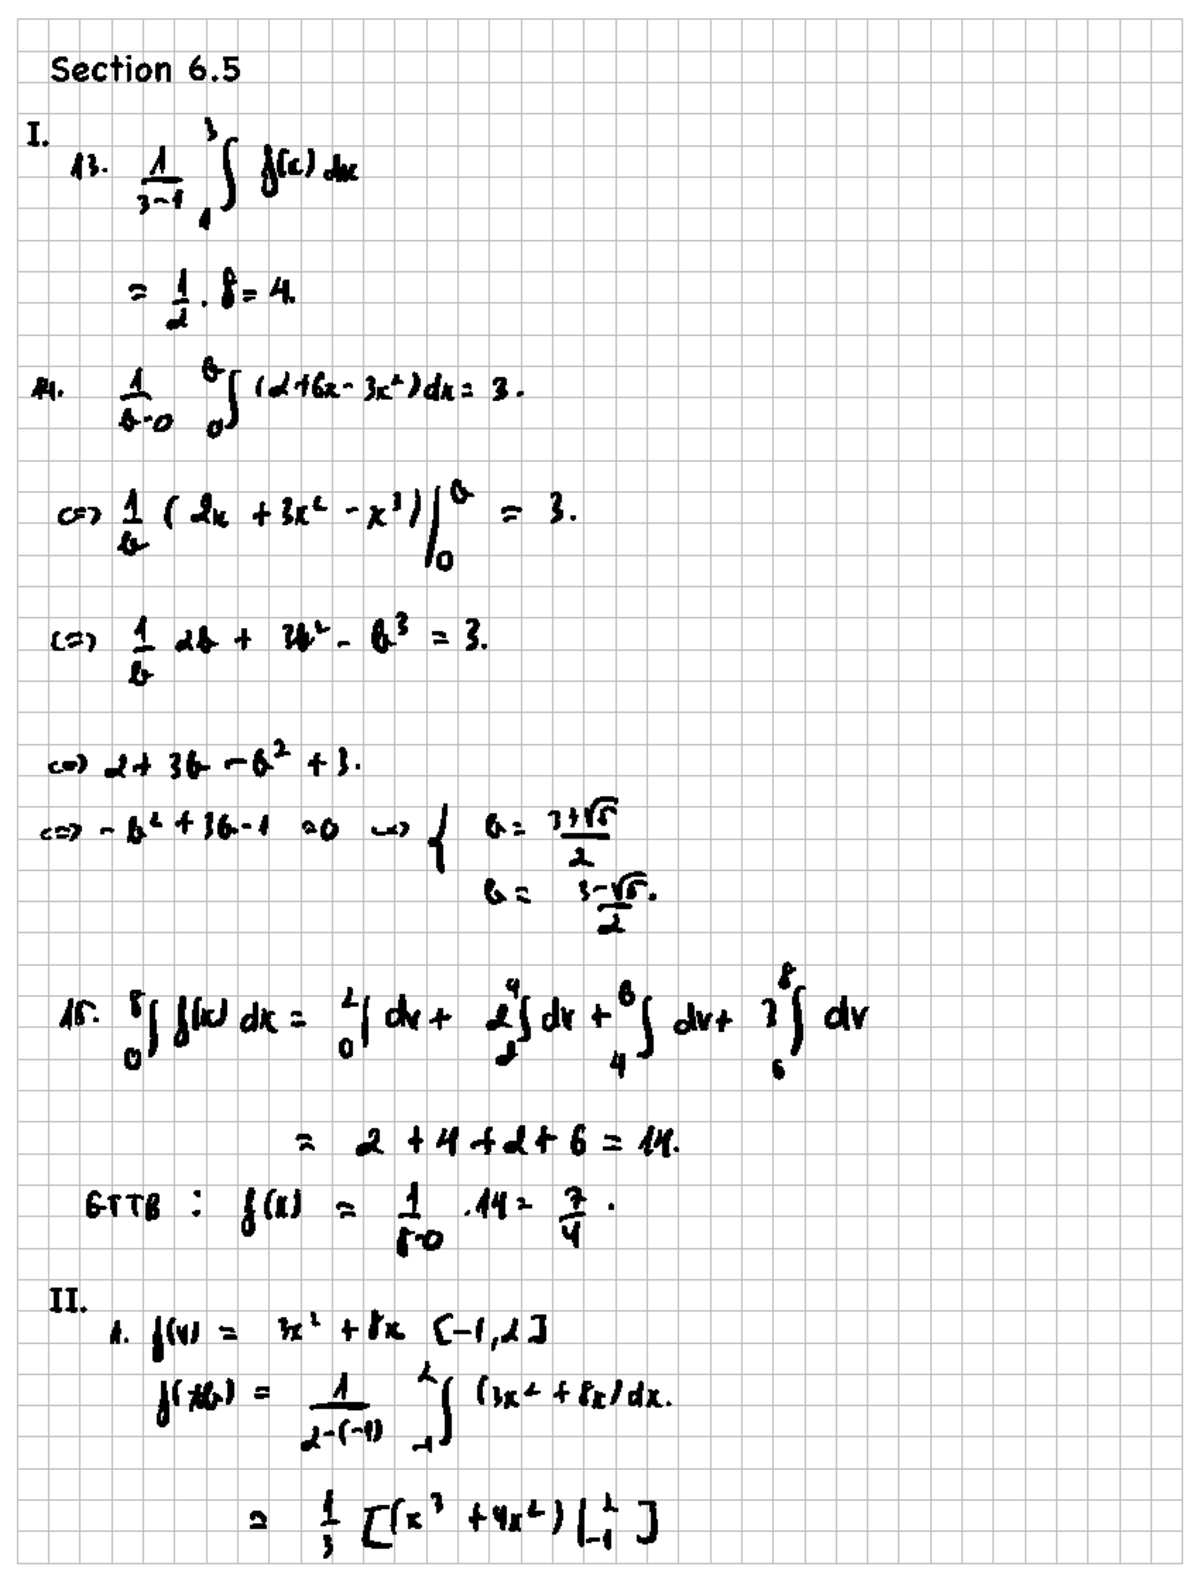 Section 6.5
I.
13. \frac{1}{3-1} \int_{1}^{3} f(x) dx
= \frac{1}{2} . 8 = 4.
14. \frac{1}{b-0} \int_{0}^{b} (2+6x-3x^2) dx = 3.
<=> \frac{1}{b} (2x + 3x^2 - x^3) |_{0}^{b} = 3.
<=> \frac{1}{b} 2b + 3b^2 - b^3 = 3.
<=> 2 + 3b - b^2 + 3.
<=> - b^2 + 3b - 1 = 0 => { b = \frac{3+\sqrt{5}}{2}
b = \frac{3-\sqrt{5}}{2}.
15. \int_{0}^{8} f(x) dx = \int_{0}^{2} dx + 2 \int_{2}^{4} dx + \int_{4}^{6} dx + 3 \int_{6}^{8} dx
= 2 + 4 + 2 + 6 = 14.
GTTB : f(x) = \frac{1}{8-0} . 14 = \frac{7}{4} .
II.
1. f(x) = 3x^2 + 8x [-1, 2]
f(tb) = \frac{1}{2-(-1)} \int_{-1}^{2} (3x^2 + 8x) dx.
= \frac{1}{3} [(x^3 + 4x^2) |_{-1}^{2} ]